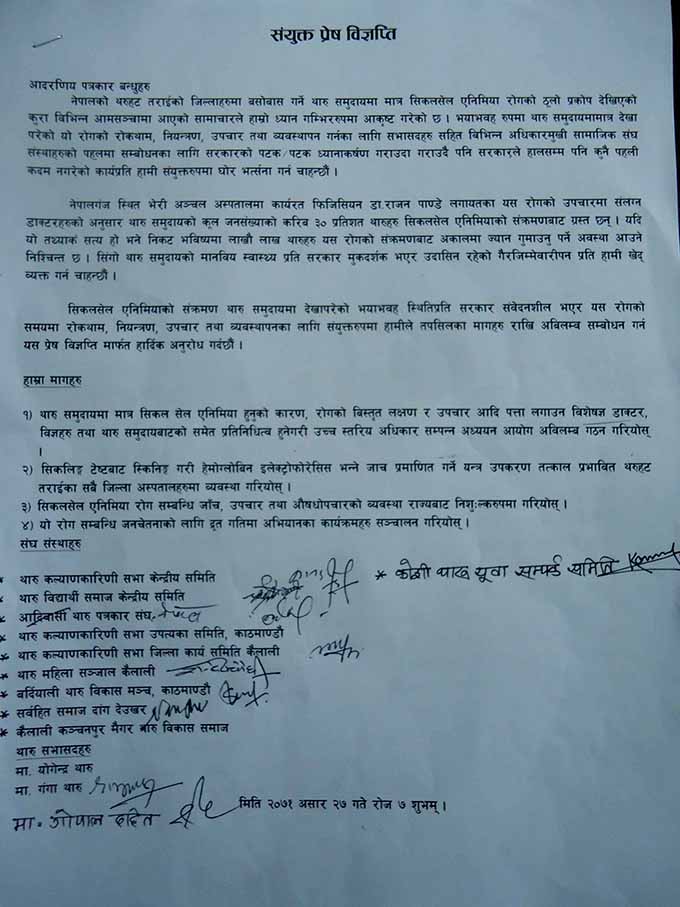 संयुक्त प्रेष विज्ञप्ति
आदरणिय पत्रकार बन्धुहरु
नेपालको थरुहट तराईको जिल्लाहरुमा बसोबास गर्ने थारु समुदायमा मात्र सिकलसेल एनिमिया रोगको ठूलो प्रकोप देखिएको
कुरा विभिन्न आमसञ्चामा आएको सामाचारले हाम्रो ध्यान गम्भिररुपमा आकृष्ट गरेको छ । भयाभवह रुपमा थारु समुदायमामात्र देखा
परेको यो रोगको रोकथाम, नियन्त्रण, उपचार तथा व्यवस्थापन गर्नका लागि सभासदहरु सहित विभिन्न अधिकारमुखी सामाजिक संघ
संस्थाहरुको पहलमा सम्बोधनका लागि सरकारको पटक/पटक ध्यानाकर्षण गराउदा गराउदै पनि सरकारले हालसम्म पनि कुनै पहली
कदम नगरेको कार्यप्रति हामी संयुक्तरुपमा घोर भर्त्सना गर्न चाहन्छौं ।
नेपालगंज स्थित भेरी अञ्चल अस्पतालमा कार्यरत फिजिसियन डा.राजन पाण्डे लगायतका यस रोगको उपचारमा संलग्न
डाक्टरहरुको अनुसार थारु समुदायको कूल जनसंख्याको करिब ३० प्रतिशत थारुहरु सिकलसेल एनिमियाको संक्रमणबाट ग्रस्त छन् । यदि
यो तथ्यांक सत्य हो भने निकट भविष्यमा लाखौं लाख थारुहरु यस रोगको संक्रमणबाट अकालमा ज्यान गुमाउनु पर्ने अवस्था आउने
निश्चिन्त छ । सिंगो थारु समुदायको मानविय स्वास्थ्य प्रति सरकार मुकदर्शक भएर उदासिन रहेको गैरजिम्मेवारीपन प्रति हामी खेद्
व्यक्त गर्न चाहन्छौं ।
सिकलसेल एनिमियाको संक्रमण थारु समुदायमा देखापरेको भयाभवह स्थितिप्रति सरकार संवेदनशील भएर यस रोगको
समयमा रोकथाम, नियन्त्रण, उपचार तथा व्यवस्थापनका लागि संयुक्तरुपमा हामीले तपसिलका मागहरु राखि अविलम्ब सम्बोधन गर्न
यस प्रेष विज्ञप्ति मार्फत हार्दिक अनुरोध गर्दछौं ।
हाम्रा मागहरु
१) थारु समुदायमा मात्र सिकल सेल एनिमिया हुनुको कारण, रोगको विस्तृत लक्षण र उपचार आदि पत्ता लगाउन विशेषज्ञ डाक्टर,
विज्ञहरु तथा थारु समुदायबाटको समेत प्रतिनिधित्व हुनेगरी उच्च स्तरिय अधिकार सम्पन्न अध्ययन आयोग अविलम्ब गठन गरियोस्
।
२) सिकलिङ टेष्टबाट स्किनिङ्ग गरी हेमोग्लोबिन इलेक्ट्रोफोरेसिस भन्ने जाच प्रमाणित गर्ने यन्त्र उपकरण तत्काल प्रभावित थरुहट
तराईका सबै जिल्ला अस्पतालहरुमा व्यवस्था गरियोस् ।
३) सिकलसेल एनिमिया रोग सम्बन्धि जाँच, उपचार तथा औषधोपचारको व्यवस्था राज्यबाट निशुःल्करुपमा गरियोस् ।
४) यो रोग सम्बन्धि जनचेतनाको लागि द्रुत गतिमा अभियानका कार्यक्रमहरु सञ्चालन गरियोस् ।
संघ संस्थाहरु
* थारु कल्याणकारिणी सभा केन्द्रीय समिति
* कोशी थारु यूवा सम्पर्क समिति
* थारु विद्यार्थी समाज केन्द्रीय समिति
* आदिबासी थारु पत्रकार संघ, नेपाल
* थारु कल्याणकारिणी सभा उपत्यका समिति, काठमाण्डौ
* थारु कल्याणकारिणी सभा जिल्ला कार्य समिति कैलाली
* थारु महिला सञ्जाल कैलाली
* बर्दियाली थारु विकास मञ्च, काठमाण्डौ
* सर्वहित समाज दांग देउखर
* कैलाली कञ्चनपुर मैगर थारु विकास समाज
थारु सभासदहरु
मा. योगेन्द्र थारु
मा. गंगा थारु
मिति २०७१ असार २७ गते रोज ७ शुभम् ।
मा. गोपाल दहित